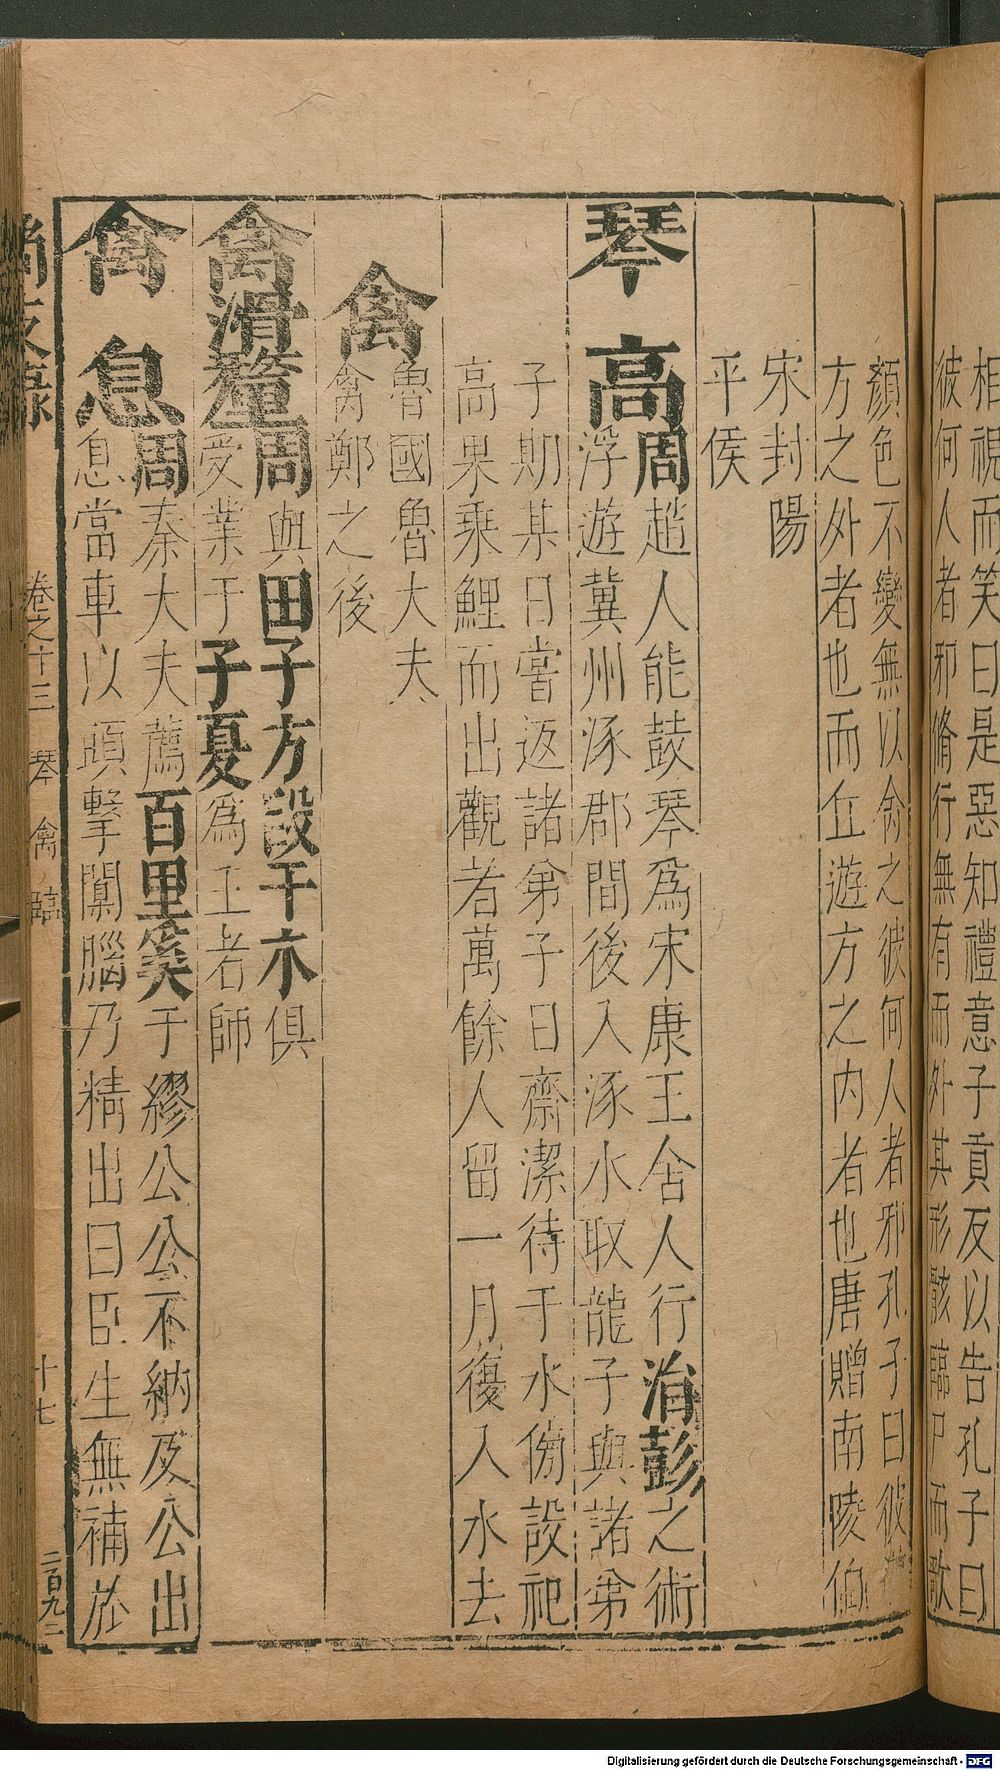 相視而笑曰是惡知禮意子貢反以告孔子曰
彼何人者邪脩行無有而外其形骸臨尸而歌
顏色不變無以命之彼何人者邪孔子曰彼遊
方之外者也而丘遊方之內者也唐贈南陵伯
宋封陽
平侯
琴高周趙人能鼓琴爲宋康王舍人行涓彭之術
浮遊冀州涿郡間後入涿水取龍子與諸弟
子期某日當返諸弟子日齋潔待于水傍設祀
高果乘鯉而出觀者萬餘人留一月復入水去
禽
魯國魯大夫
禽鄭之後
禽滑釐周與田子方段干木俱
受業于子夏爲王者師
禽息周秦大夫薦百里奚于繆公公不納及公出
息當車以頭擊闑腦乃精出曰臣生無補於
尚友錄
卷之十三
琴 禽 臨
十七
二百九二
Digitalisierung gefördert durch die Deutsche Forschungsgemeinschaft - DFG